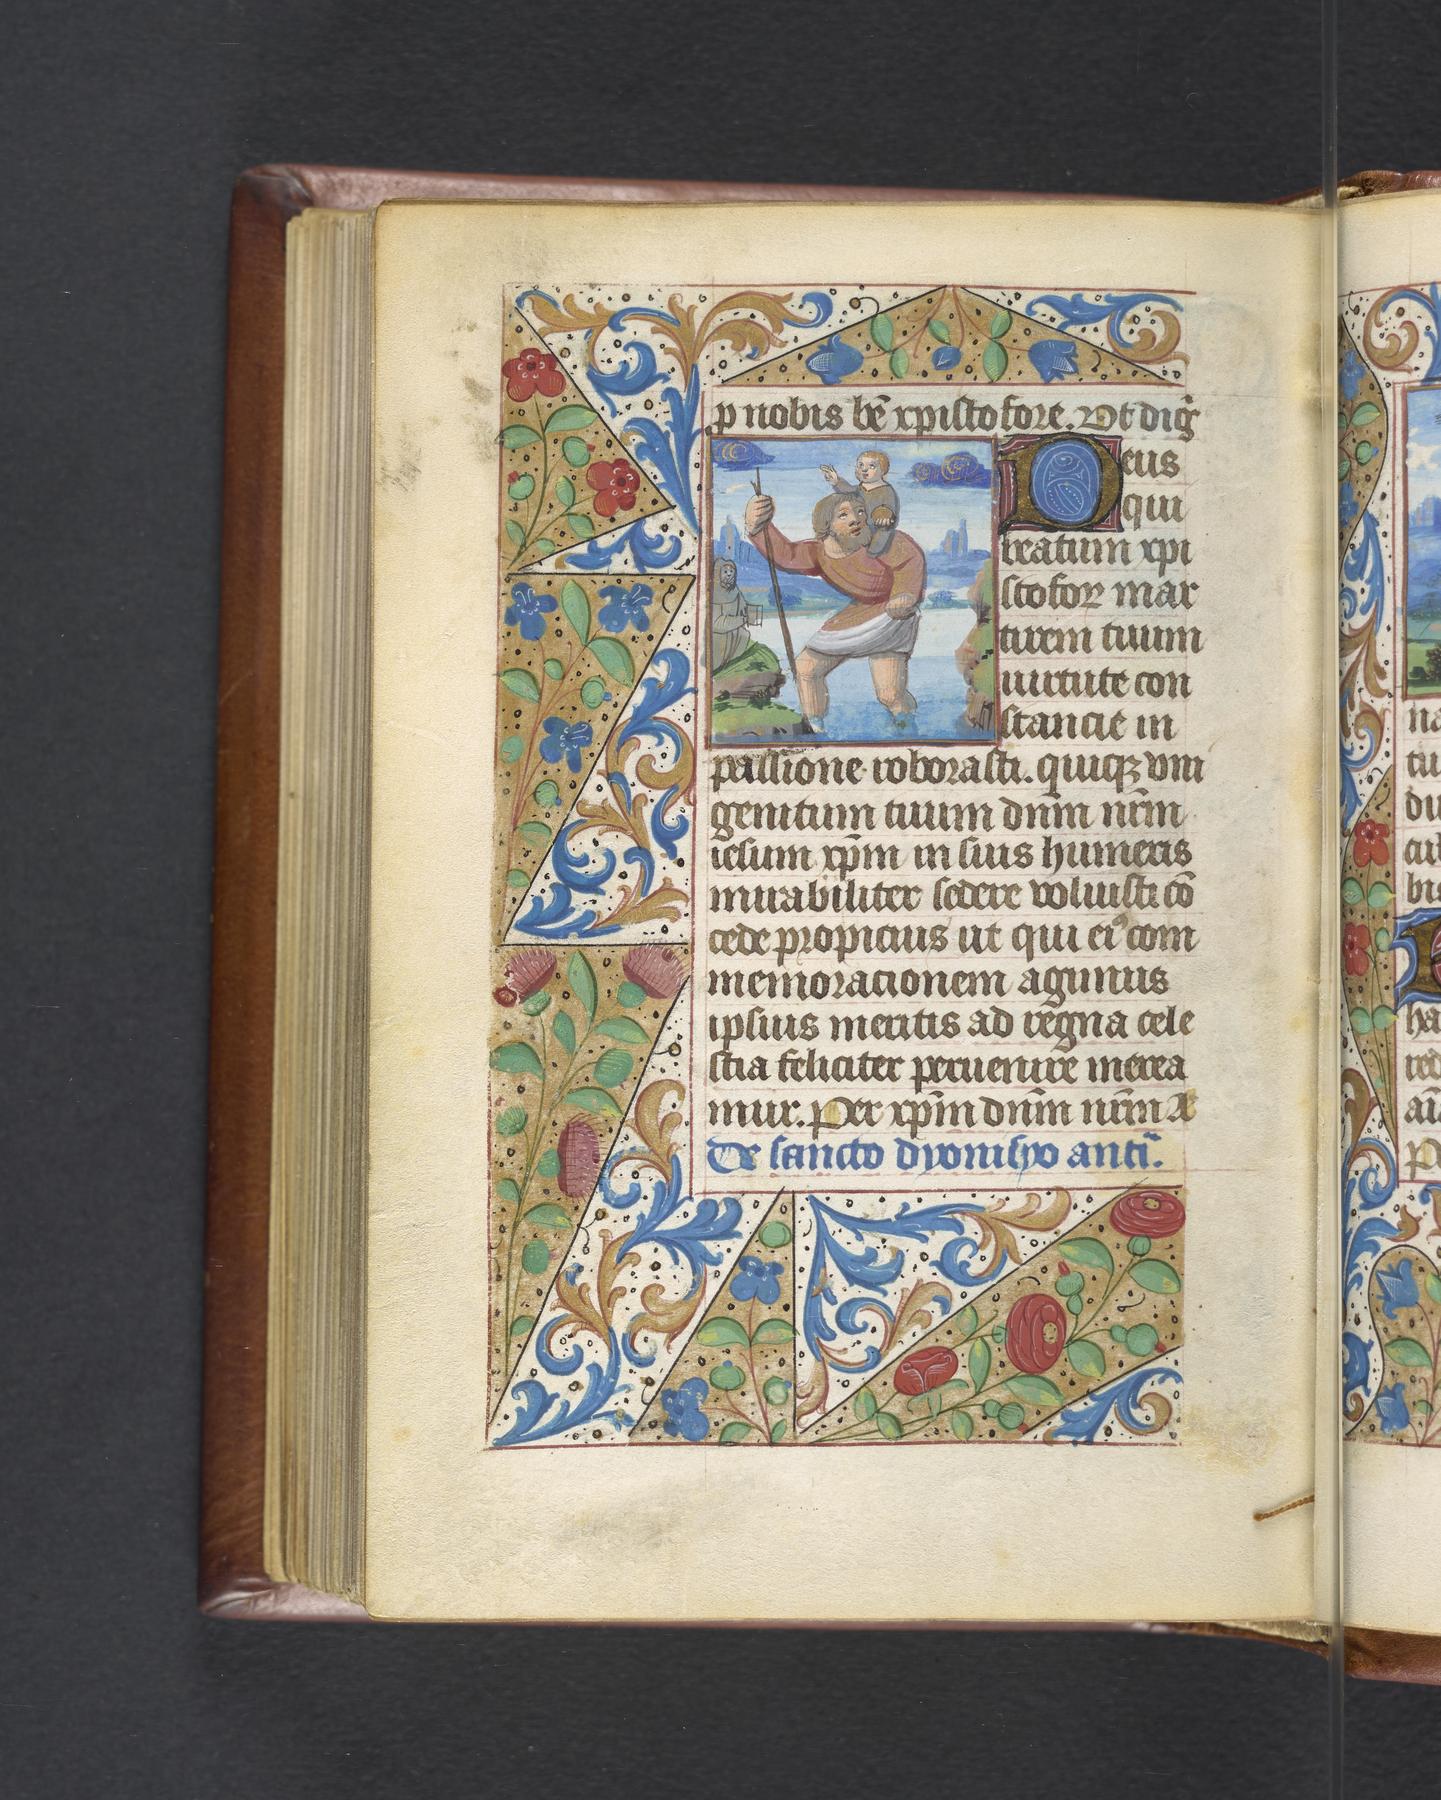 p nobis bē xpistofore. Ut dig̃
Deus
qui
beatum xpi
stofoꝝ mar
tirem tuum
uirtute con
stancie in
passione roborasti. quiqꝫ vni
genitum tuum dn̄m nr̄m
iesum xp̄m in suis humeris
mirabiliter sedere voluisti cō
cede propicius ut qui ei⁹ com
memoracionem agimus
ipsius meritis ad regna cele
stia feliciter peruenire merea
mur. Per xp̄m dn̄m nr̄m A
De sancto dyonisyo anti.
na
tu
du
cub
bis
ha
red
aīa
Pe